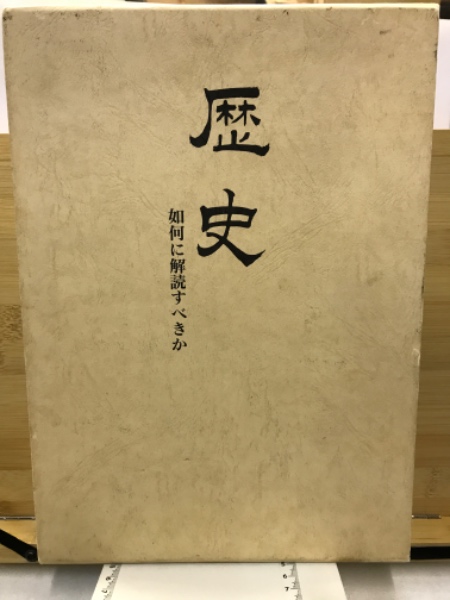 歴史
如何に解読すべきか